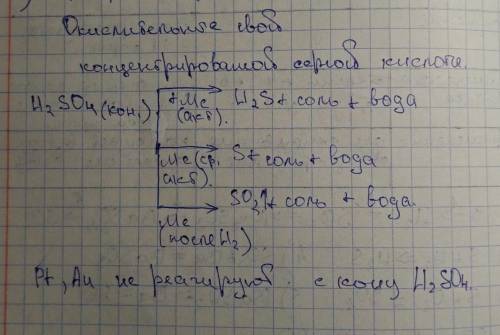 Окислительные свой
концентрированной серной кислоты.
H₂SO₄ (кон.) +Ме (акт). H₂S + соль + вода
Ме (ср. акт). S + соль + вода
Ме (после H₂) SO₂↑ + соль + вода.
Pt, Au не реагируют с конц H₂SO₄.